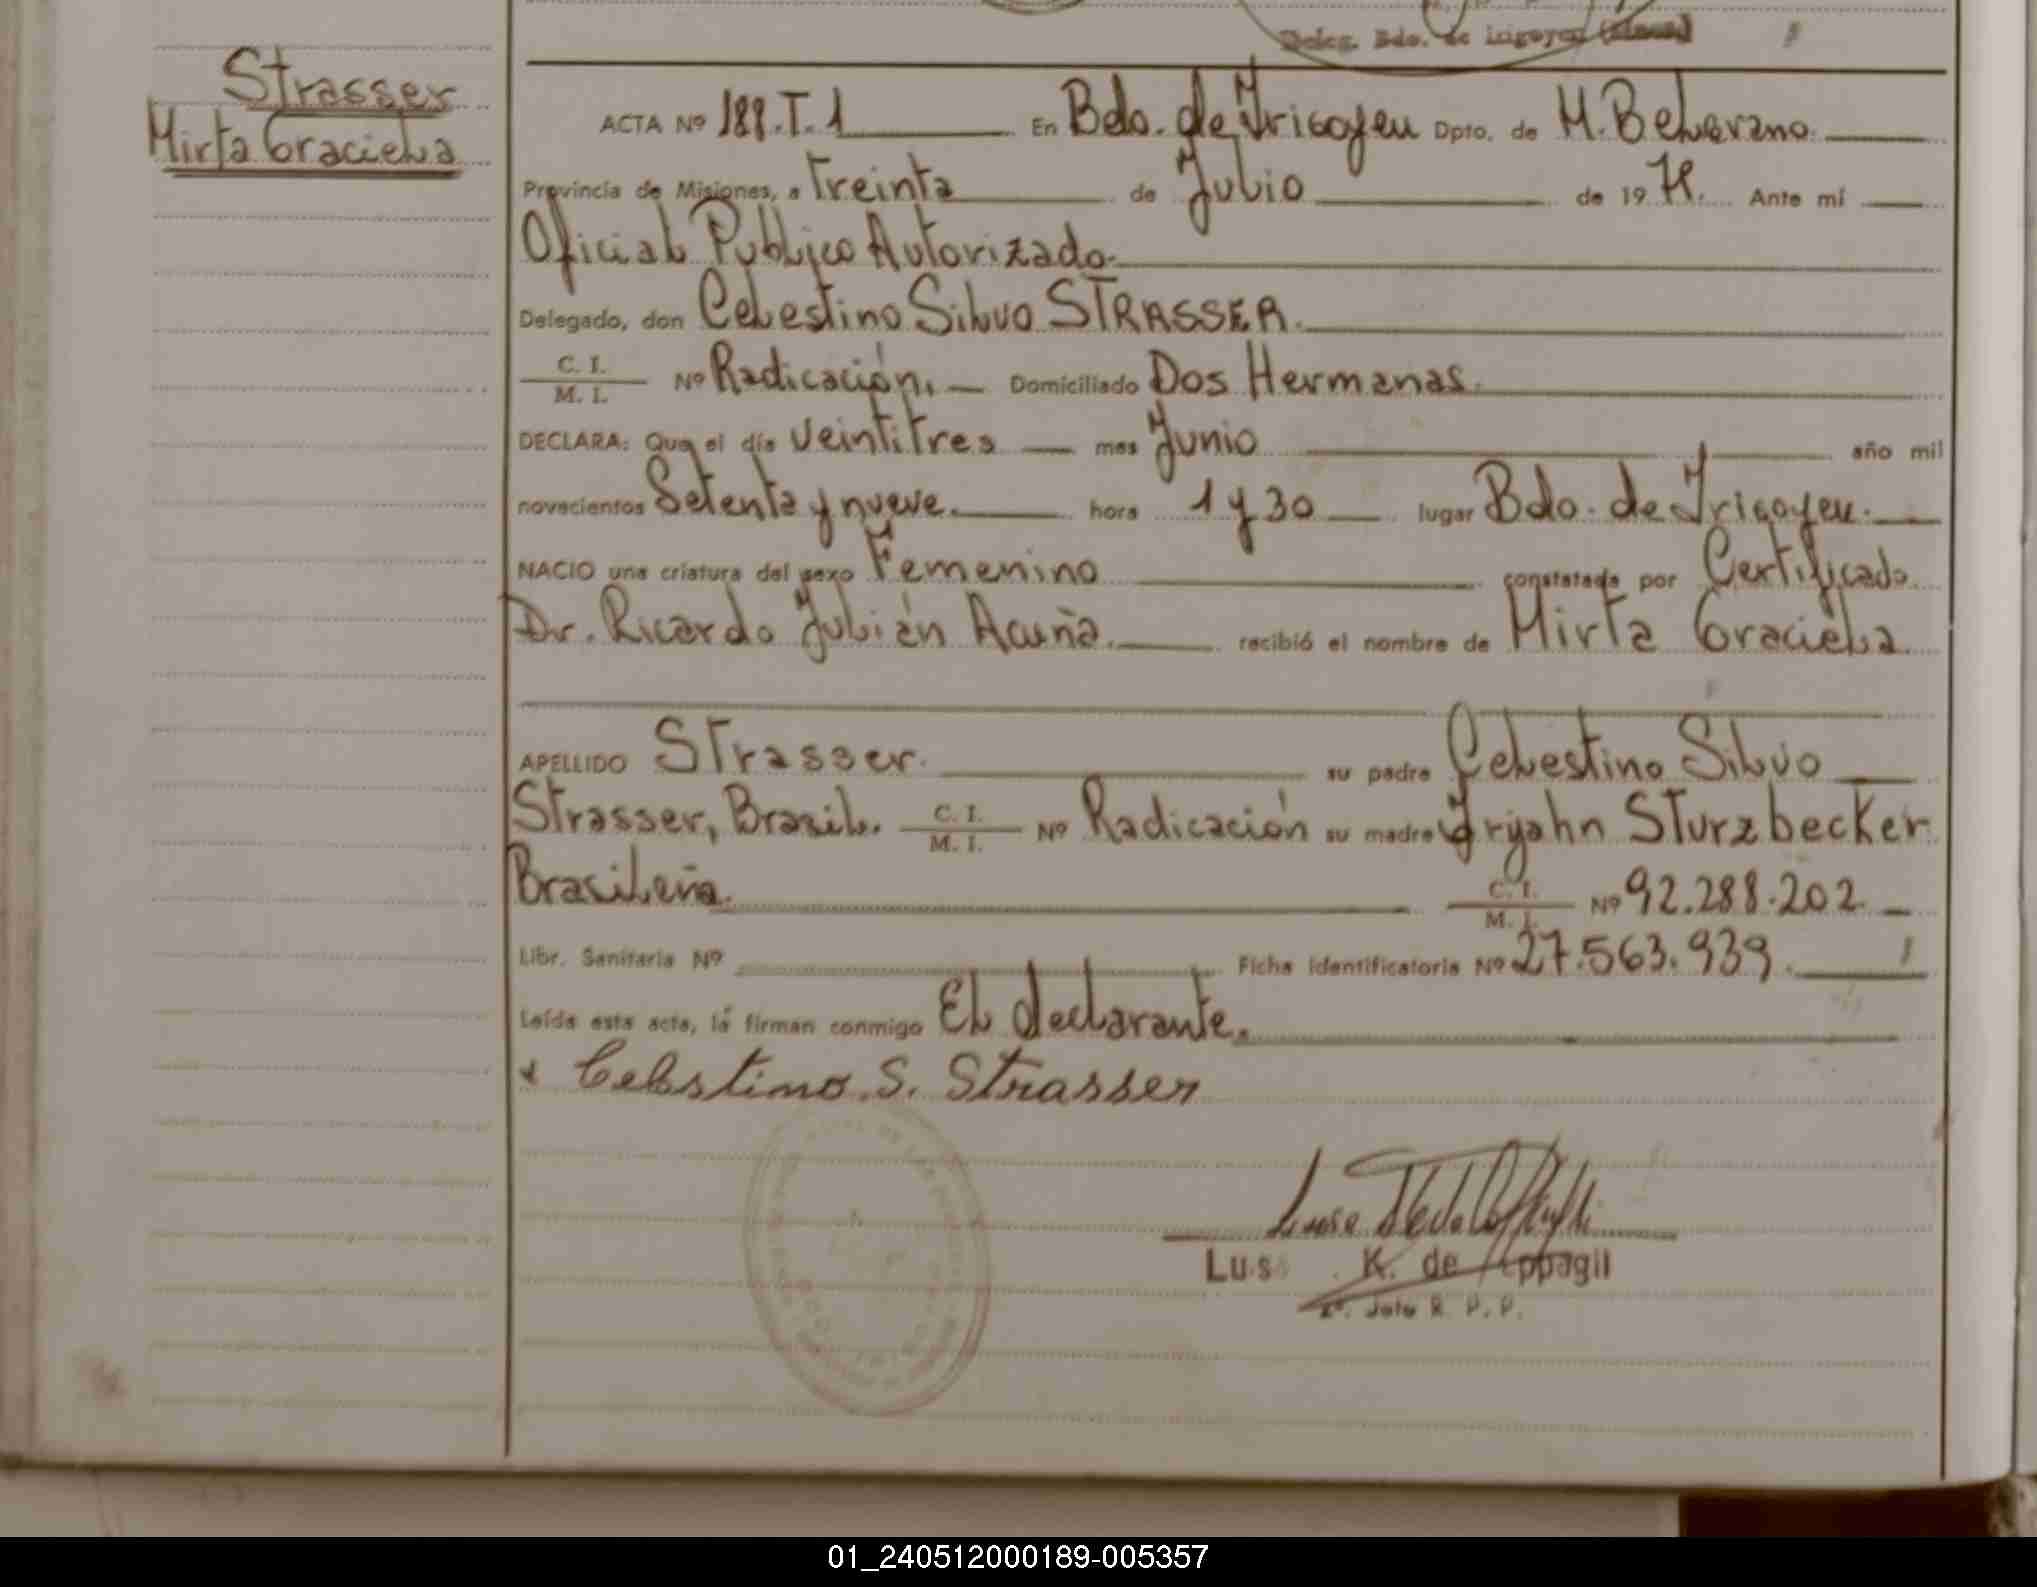 Deleg. Bdo. de Irigoyen
Strasser
Mirta Graciela
ACTA Nº 188.T.1 En Bdo. de Irigoyen Dpto. de M. Belgrano.
Provincia de Misiones, a Treinta de Julio de 19 79. Ante mí
Oficial Publico Autorizado.
Delegado, don Celestino Silvo STRASSER.
C. I.
M. I. Nº Radicación. Domiciliado Dos Hermanas.
DECLARA: Que el día Veintitres mes Junio año mil
novecientos Setenta y nueve. hora 1 y 30 lugar Bdo. de Irigoyen.
NACIO una criatura del sexo Femenino constatada por Certificado
Dr. Ricardo Julián Acuña. recibió el nombre de Mirta Graciela
APELLIDO Strasser. su padre Celestino Silvo
Strasser, Brasil. C. I. M. I. Nº Radicación su madre Iryahn Sturzbecker
Brasileña. C. I. M. I. Nº 92.288.202.
Libr. Sanitaria Nº Ficha identificatoria Nº 27.563.939.
Leída esta acta, la firman conmigo El declarante.
Celestino. S. Strasser
K. de Appagil
R. P. P.
01_240512000189-005357